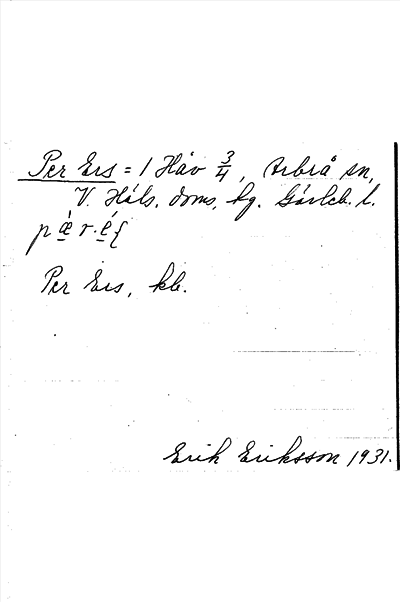 Per Ers = 1 Håv 3/4, Arbrå sn,
V. Häls. doms, hg. Gävleb. l.
pæ̀r·éʃ
Per Ers, kb.
Erik Eriksson 1931.